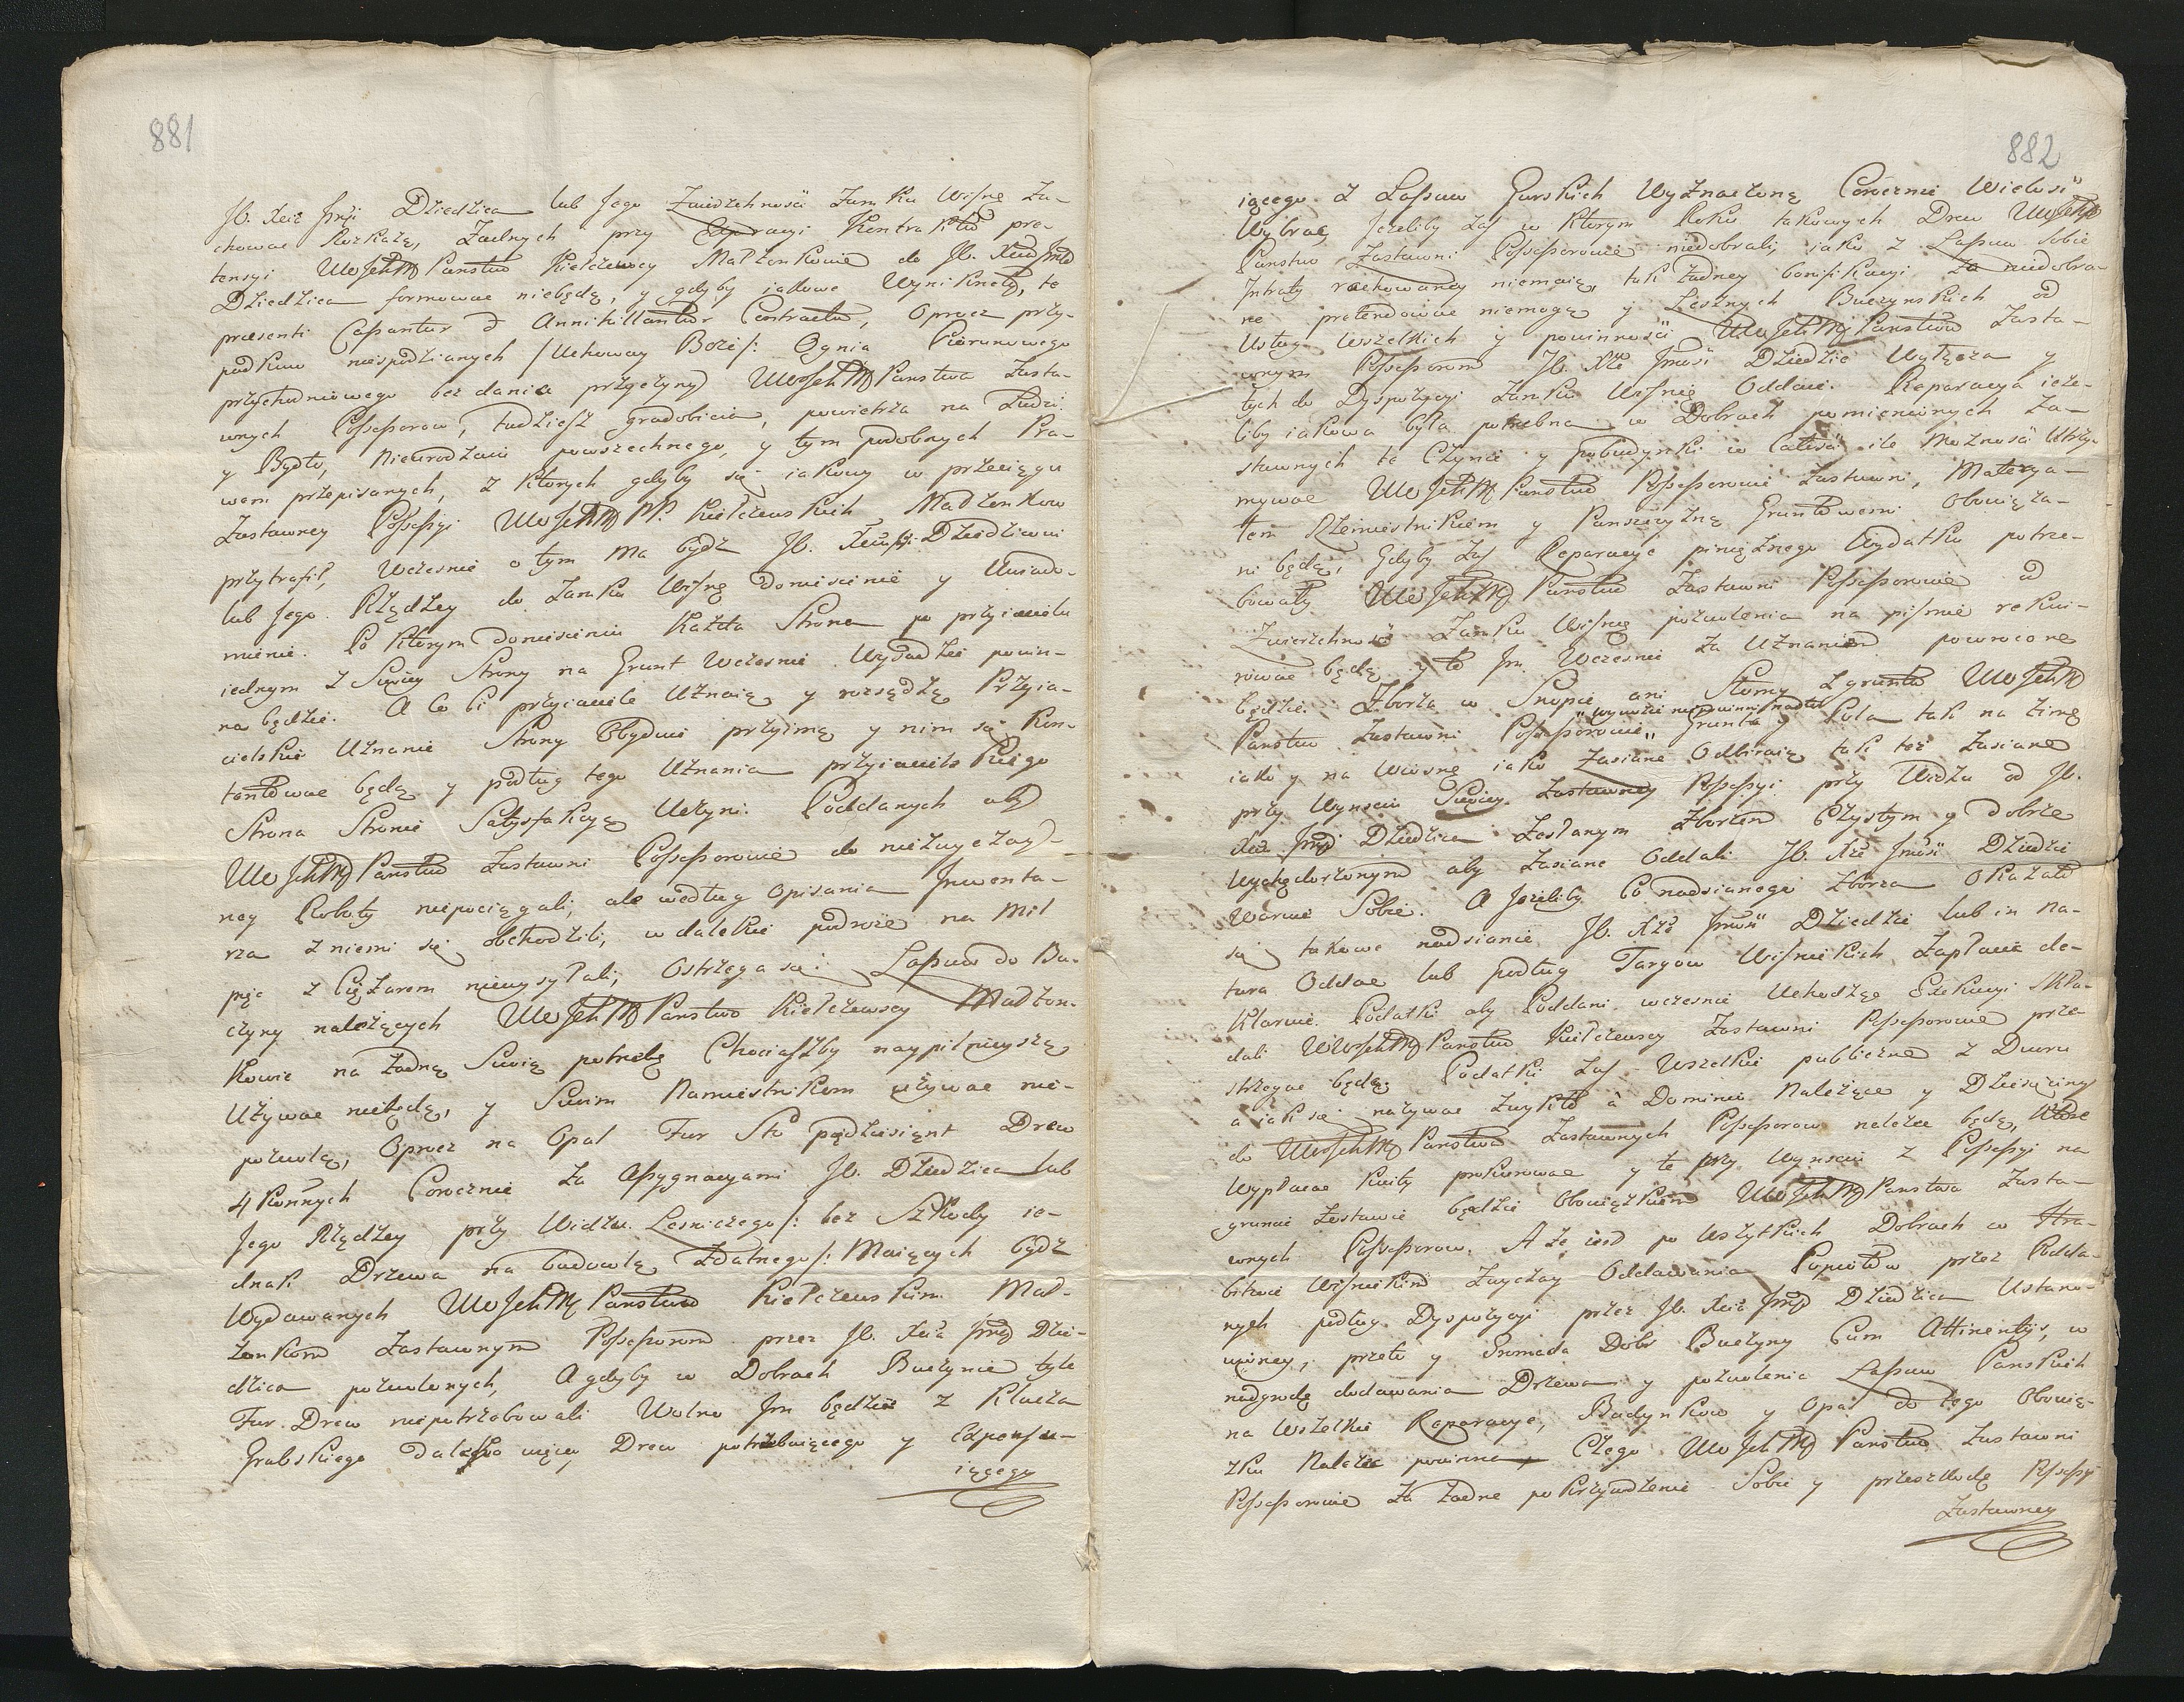 881
Jb. Xcia Jmci Dziedzica lub Jego Zwierzchnosci Zamku Wisnę Za-
chowac Rozkażą, Żadnych przy Exprawyi Kontraktu pre-
tensyi WWJchM Panstwo Kiełczewscy Małżonkowie do Jb. Xcia Jmci
Dziedzica formowac niebędą, y gdyby iakowe Wynikneły, te
praesenti Cassantur & Annihillantur Contractu, Oprocz przy-
padkow niespodzianych /:Uchoway Boże:/ Ognia Piorunowego
przychodniowego bez dania przyczyny WWJchM Panstwa Zasta-
wnych Possessorow, tudziesz gradobicia, powietrza na Ludzi
y Bydło, Nieurodzaiu powszechnego, y tym podobnych Pra-
wem przepisanych, z ktorych gdyby się iakowy w przeciągu
Zastawney Possessyi WWJchM PP. Kiełczewskich Madżonkow
przytrafił, Wczesnie o tym ma bydz Jb. Xciu Jmci Dziedzicowi
lub Jego Rządzcy do Zamku Wisnę doniesienie y Uwiado-
mienie. Po ktorym doniesieniu Każda Strona po przyiacielu
iednym z Swoiey Strony na Grunt Wczesnie Wysadzic powin-
na będzie. A Co Ci przyiaciele Uznaią y rozsądzą Przyia-
cielskie Uznanie Strony Obydwie przyimą y nim się Kon-
tentowac będą y podług tego Uznania przyiacielskiego
Strona Stronie Satysfakcyą Uczyni. Poddanych aby
WWJchM Panstwo Zastawni Possessorowie do niezwyczay-
ney Roboty niepociągali, ale według opisania Jnwenta-
rza z niemi się obchodzili, w dalekie podroże na Mil
pięc z Ciężarem niewysyłali, ostrzega się: Lassow do Bu-
czyny należących WWJchM Panstwo Kiełczewscy Madżon-
kowie na żadną Swoią potrzebę Chociaszby naypilnieyszą
Używac niebędą, y Swoim Namiestnikom używac nie-
pozwolą, Oprocz na Opał Fur Sto pędziesiąnt Drew
4 Konnych Corocznie Za Assygnacyami Jb. Dziedzica lub
Jego Rządzcy przy Widzu Lesniczego /: bez Szkody ie-
dnak Drzewa na budowlą Zdatnego :/ Maiących bydz
Wydawanych WWJchM Panstwu Kiełczewskim Mał-
żonkom Zastawnym Possessorom przez Jb. Xcia Jmci Dzie-
dzica pozwolonych, A gdyby w Dobrach Buczynie tyle
Fur Drew niepotrzebowali Wolno Jm będzie z Klucza
Grabskiego daleko więcey Drew potrzebuiącego y Expensu-
iącego

882
iącego z Lassow Gurskich Wyznaczoną Corocznie Wielosc
Wybrac, Jeżeliby Zas w ktorym Roku takowych Drew WWJchM
Panstwo Zastawni Possessorowie niedobrali, iako z Lassow Sobie
Jntraty rachowaney niemaią, tak żadney bonifikacyi Za niedobra-
ne pretendowac niemogą y Lesnych Buczynskich od
Usług Wszelkich y powinnosci WWJchM Panstwu Zasta-
wnym Possessorom Jb. Xże Jmsc Dziedzic Wyłącza y
tych do Dyspozycyi Zamku Wisnię Oddaie. Reparacya ieże-
liby iakowa była potrzebna w Dobrach pomienionych Za-
stawnych te Czynic y pobudynki w Całosci ile Moznosci Utrzy-
mywac WWJchM Panstwo Possessorowie Zastawni, Materya-
łem Rzemiestnikiem y Panszczyzną Gruntowemi obowiąza-
ni będą, Gdyby Zas Reparacye pieniężnego Wydatku potrze-
bowały WWJchM Panstwo Zastawni Possessorowie od
Zwierzchnosci Zamku Wisnię pozwolenia na pismie rekwi-
rowac będą y te Jm. Wczesnie Za Uznaniem powrocone
będzie. Zborża w Snopie ani Słomy z gruntu WWJchM
Panstwo Zastawni Possessorowie "wywozic niepowinni nadto" Grunta y Pola tak na zimę
iako y na Wiosnę iako Zasiane Odbiraią tak też Zasiane
przy Wynisciu Swoiey Zastawney Possessyi przy Widzu od Jb.
Xcia Jmci Dziedzica Zesłanym Zbożem Czystym y dobrze
Wychędożonym aby Zasiane Oddali Jb. Xże Jmsc Dziedzic
Waruie Sobie. A Jeżeliby Co nadsianego Zborza Okazało
się takowe nadsianie Jb. Xże Jmsc Dziedzic lub in na-
tura Oddac lub podług Targow Wisnickich Zapłacic de-
klaruie. Podatki aby Poddani wczesnie Uchodząc Exekucyi Skła-
dali WWJchM Panstwo Kiełczewscy Zastawni Possessorowie prze-
strzegac będą. Podatki Zas Wszelkie publiczne z Dworu
a iak się nazywac Zwykło à Dominio Należące y Dziesięciny
do WWJchM Panstwa Zastawnych Possessorow należec będą, Które
Wypłacac Kwity prokurowac y te przy Wynisciu z Possessyi na
gruncie Zostawic będzie Obowiązkiem WWJchM Panstwa Zasta-
wnych Possessorow. A że iest po Wszytkich Dobrach w Hra-
bstwie Wisnickim Zwyczay Oddawania Popiołow przez Podda-
nych podług Dyspozycyi przez Jb. Xcia Jmci Dziedzica Ustano-
wioney, przeto y Gromada Dobr Buczyny Cum Attinentiis, w
nadgrodę dodawania Drzewa y pozwolenia Lassow Panskich
na Wszelkie Reparacye, Budynkow y Opał do tego Obowią-
zku Należec powinna, Czego WWJchM Panstwo Zastawni
Possessorowie Za żadne pokrzywdzenie Sobie y przeszkodę Possessyi
Zastawney